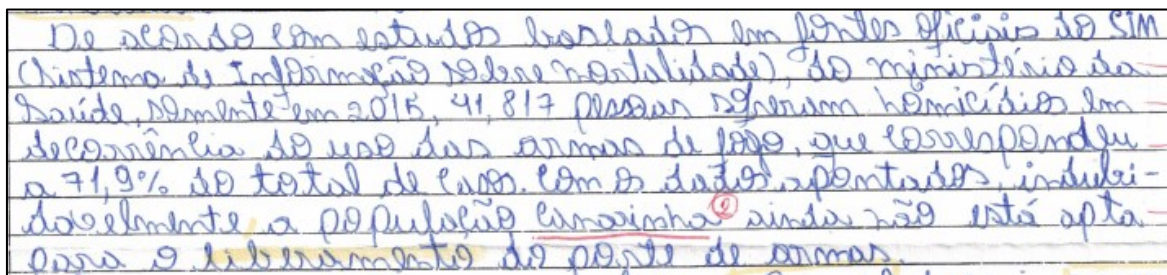 De acordo com estudos baseados em fontes oficiais do SIM
(Sistema de Informação sobre mortalidade), do ministério da
Saúde, somente em 2015, 41,817 pessoas sofreram homicídios em
decorrência do uso das armas de fogo, que correspondeu
a 71,9% do total de casos. Com os dados apontados, indubi-
tavelmente a população canarinha 2 ainda não está apta
para o liberamento do porte de armas.